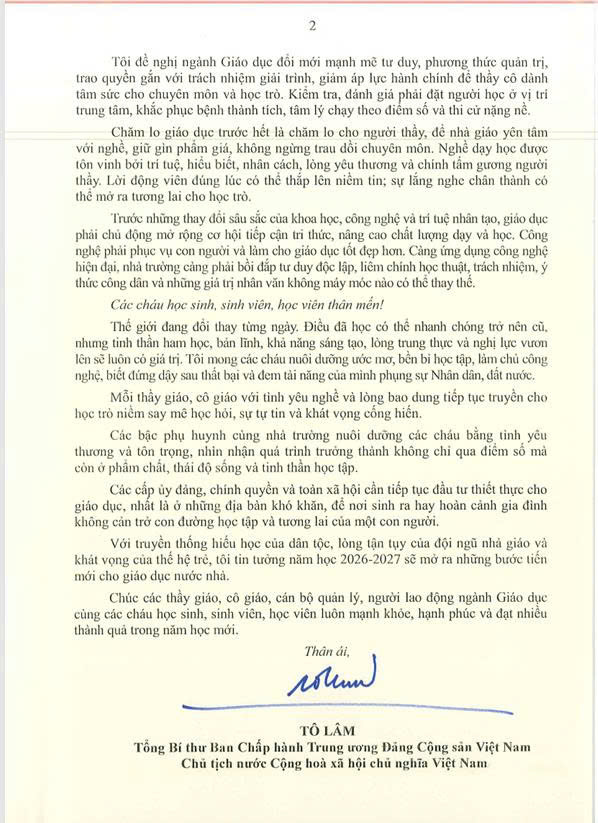 2
Tôi đề nghị ngành Giáo dục đổi mới mạnh mẽ tư duy, phương thức quản trị,
trao quyền gắn với trách nhiệm giải trình, giảm áp lực hành chính để thầy cô dành
tâm sức cho chuyên môn và học trò. Kiểm tra, đánh giá phải đặt người học ở vị trí
trung tâm, khắc phục bệnh thành tích, tâm lý chạy theo điểm số và thi cử nặng nề.
Chăm lo giáo dục trước hết là chăm lo cho người thầy, để nhà giáo yên tâm
với nghề, giữ gìn phẩm giá, không ngừng trau dồi chuyên môn. Nghề dạy học được
tôn vinh bởi trí tuệ, hiểu biết, nhân cách, lòng yêu thương và chính tấm gương người
thầy. Lời động viên đúng lúc có thể thắp lên niềm tin; sự lắng nghe chân thành có
thể mở ra tương lai cho học trò.
Trước những thay đổi sâu sắc của khoa học, công nghệ và trí tuệ nhân tạo, giáo dục
phải chủ động mở rộng cơ hội tiếp cận tri thức, nâng cao chất lượng dạy và học. Công
nghệ phải phục vụ con người và làm cho giáo dục tốt đẹp hơn. Càng ứng dụng công nghệ
hiện đại, nhà trường càng phải bồi đắp tư duy độc lập, liêm chính học thuật, trách nhiệm, ý
thức công dân và những giá trị nhân văn không máy móc nào có thể thay thế.
Các cháu học sinh, sinh viên, học viên thân mến!
Thế giới đang đổi thay từng ngày. Điều đã học có thể nhanh chóng trở nên cũ,
nhưng tinh thần ham học, bản lĩnh, khả năng sáng tạo, lòng trung thực và nghị lực vươn
lên sẽ luôn có giá trị. Tôi mong các cháu nuôi dưỡng ước mơ, bền bỉ học tập, làm chủ công
nghệ, biết đứng dậy sau thất bại và đem tài năng của mình phụng sự Nhân dân, đất nước.
Mỗi thầy giáo, cô giáo với tình yêu nghề và lòng bao dung tiếp tục truyền cho
học trò niềm say mê học hỏi, sự tự tin và khát vọng cống hiến.
Các bậc phụ huynh cùng nhà trường nuôi dưỡng các cháu bằng tình yêu
thương và tôn trọng, nhìn nhận quá trình trưởng thành không chỉ qua điểm số mà
còn ở phẩm chất, thái độ sống và tinh thần học tập.
Các cấp ủy đảng, chính quyền và toàn xã hội cần tiếp tục đầu tư thiết thực cho
giáo dục, nhất là ở những địa bàn khó khăn, để nơi sinh ra hay hoàn cảnh gia đình
không cản trở con đường học tập và tương lai của một con người.
Với truyền thống hiếu học của dân tộc, lòng tận tụy của đội ngũ nhà giáo và
khát vọng của thế hệ trẻ, tôi tin tưởng năm học 2026-2027 sẽ mở ra những bước tiến
mới cho giáo dục nước nhà.
Chúc các thầy giáo, cô giáo, cán bộ quản lý, người lao động ngành Giáo dục
cùng các cháu học sinh, sinh viên, học viên luôn mạnh khỏe, hạnh phúc và đạt nhiều
thành quả trong năm học mới.
Thân ái,
TÔ LÂM
Tổng Bí thư Ban Chấp hành Trung ương Đảng Cộng sản Việt Nam
Chủ tịch nước Cộng hoà xã hội chủ nghĩa Việt Nam